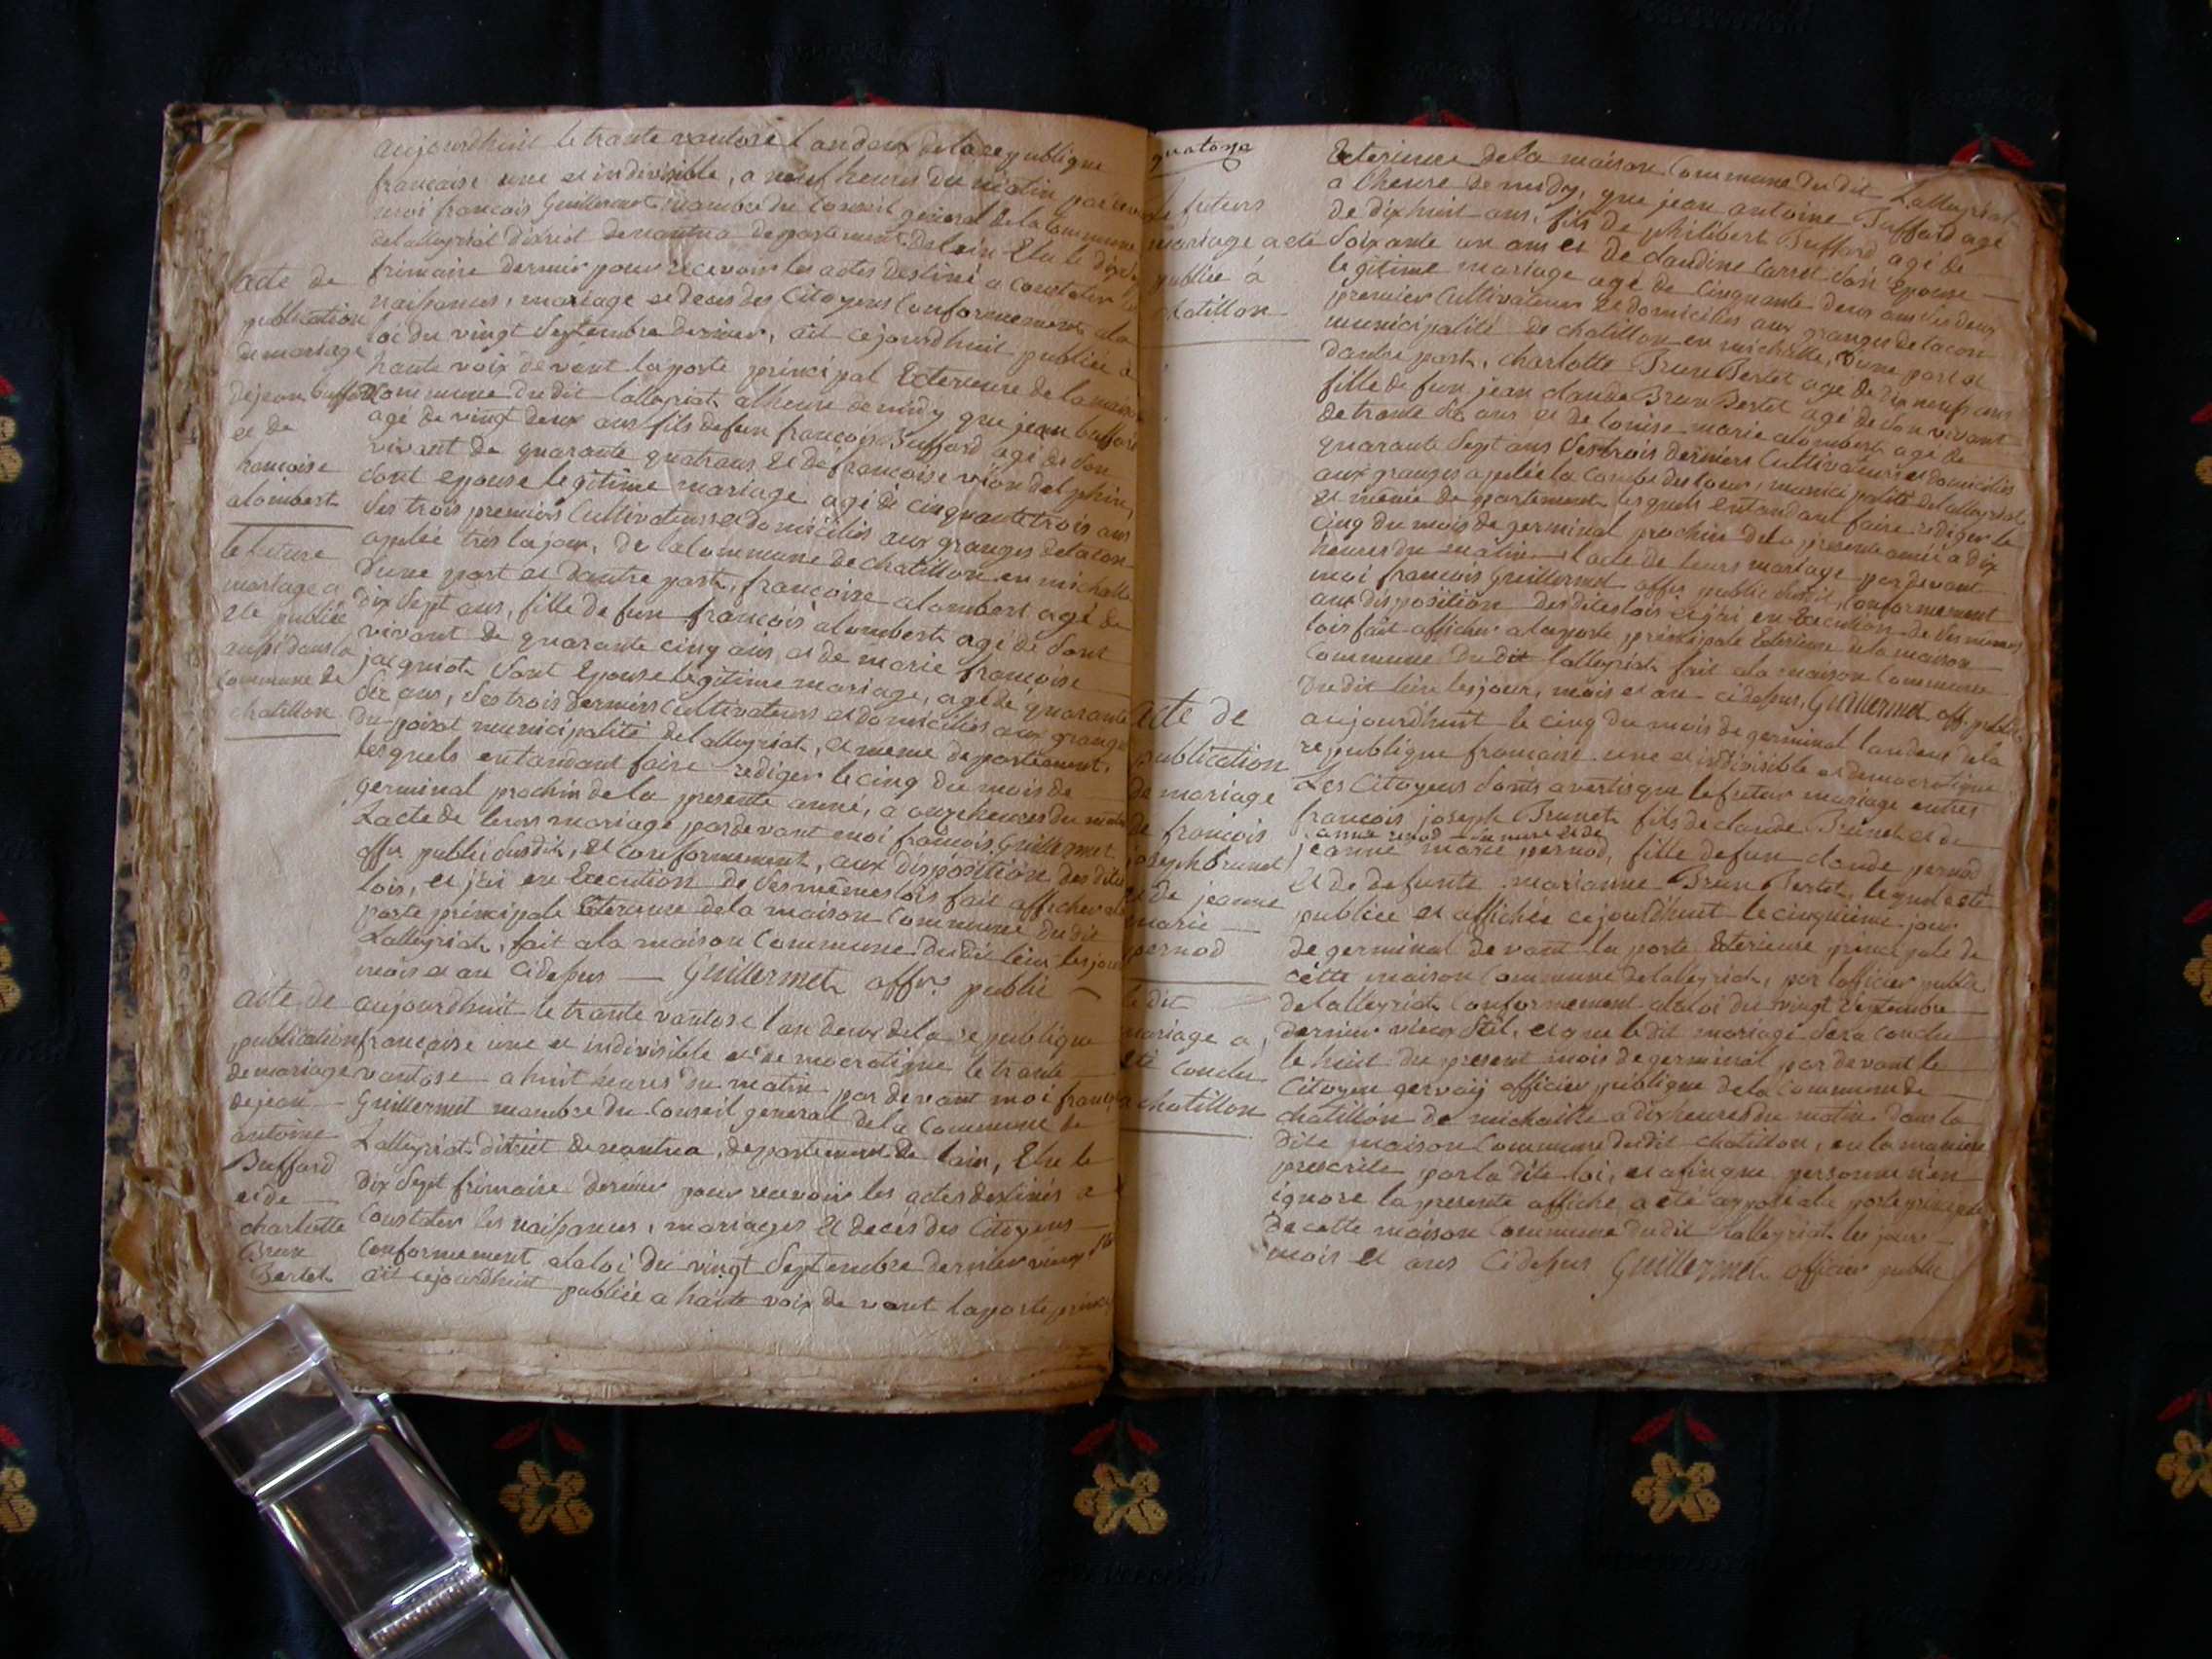 aujourdhuit le trante vantose l an deux de la republique
francaise une et indivisible, a neuf heures du matin par devant
moi francois Guillermet mambre du Conseil general de la Commune
de lalleyriat district de nantua departement de lain Elu le dix sept
frimaire dernier pour recevoir les actes destiné a constater les
naissances, mariage et deces des Citoyens Conformement ala
loi du vingt Septembre dernier, ait cejourdhuit publiée à
haute voix devant la porte principal Exterieure de la maison
Commune du dit lalleyriat alheure de midy que jean buffard
agé de vingt deux ans fils de feu francois Buffard agé de son
vivant de quarante quatrans et de francoise vion delphin
sont epouse legitime mariage agé de cinquante trois ans
Ses trois premiers Cultivateurs et domiciliés aux granges de lacon
appelée tres lajoux, de la Commune de chatillon en michalle
dune part et dautre part, francoise alombert agé de
dix Sept ans, fille de feu francois alombert agé de sont
vivant de quarante cinq ans et de marie francoise
jacquiot sont Epouse legitime mariage, agé de quarante
Six ans, Ses trois derniers Cultivateurs et domiciliés aux granges
du poizat municipalité de lalleyriat, et meme departement,
lesquels entandant faire rediger le cinq du mois de
germinal prochin de la presente anné, a onze heures du matin
L acte de leurs mariage par devant moi francois Guillermet
offr public Susdit, et Conformement, aux disposition des dites
lois, et j'ai en Execution de Ses mêmes lois fait afficher ala
porte principale Exterieure de la maison Commune du dit
Lalleyriat, fait ala maison Commune du dit lieu les jour
mois et an Cidessus — Guillermet offr public
acte de
publication
de mariage
de jean buffard
et de
francoise
alombert
le future
mariage a
ete publiée
aussi dans la
Commune de
chatillon
aujourdhuit le trante vantose l an deux de la republique
francaise une et indivisible et democratique le trante
vantose a huit heures du matin par devant moi francois
Guillermet mambre du Conseil general de la Commune de
Lalleyriat district de nantua, departement de lain, Elu le
dix Sept frimaire dernier pour recevoir les actes destinés a
Constater les naissances, mariages et decés des Citoyens
Conformement ala loi du vingt Septembre dernier vieux
ait cejourdhuit publiée a haute voix de vant la porte principale
acte de
publication
de mariage
de jean
antoine
Buffard
et de
charlotte
Brun
Bertet
quatorze
le futeurs
mariage a eté
publiée à
chatillon
Exterieure de la maison Commune du dit Lalleyriat
a lheure de midy, que jean antoine Buffard agé
de dixhuit ans, fils de philibert Buffard agé de
Soixante un ans et de claudine Carret son Epouse
legitime mariage agé de Cinquante deux ans Ses deux
premier Cultivateurs et domiciliés aux granges de lacon
municipalité de chatillon en michalle, Dune part et
dautre part, charlotte Brun Bertet agé de dix neuf ans
fille de feu jean claude Brun Bertet agé de son vivant
de trante Six ans et de louise marie alombert agé de
quarante Sept ans Ses trois derniers Cultivateurs et domiciliés
aux granges appelée la Combe du tour, municipalité de lalleyriat
et même departement lesquels entandant faire rediger le
cinq du mois de germinal prochin de la presente année a dix
heures du matin l acte de leurs mariage par devant
moi francois Guillermet offr public Susdit, Conformement
aux disposition des dites lois et j'ai en Execution de Ses memes
lois fait afficher ala porte principale Exterieure de la maison
Commune du dit lalleyriat fait ala maison Commune
du dit lieu les jour, mois et an cidessus, Guillermet off. public
acte de
publication
de mariage
de francois
joseph brunet
et de jeanne
marie
pernod
le dit
mariage a
eté conclu
a chatillon
aujourdhuit le cinq du mois de germinal l an deux de la
republique francaise une et indivisible et democratique
Les Citoyens sonts avertis que le futur mariage entres
francois joseph Brunet fils de claude Brunet et de
jeanne marie pernod, fille de feu claude pernod
et de defunte marianne Brun Bertet, lequel a eté
publiée et affichée cejourdhuit le cinquième jour
de germinal devant la porte Exterieure principale de
cette maison Commune de lalleyriat, par lofficier public
de lalleyriat Conformement ala loi du vingt Septembre
dernier vieux Stil, et que le dit mariage Sera Conclu
le huit du present mois de germinal par devant le
Citoyen gervais officier publique de la Commune de
chatillon de michaille a dix heures du matin dans la
dite maison Commune du dit chatillon, en la maniere
prescrite par la dite loi, et afin que personne n'en
ignore la presente affiche a eté apposé ala porte principale
de cette maison Commune du dit Lalleyriat les jour
mois et ans Cidessus Guillermet officier public